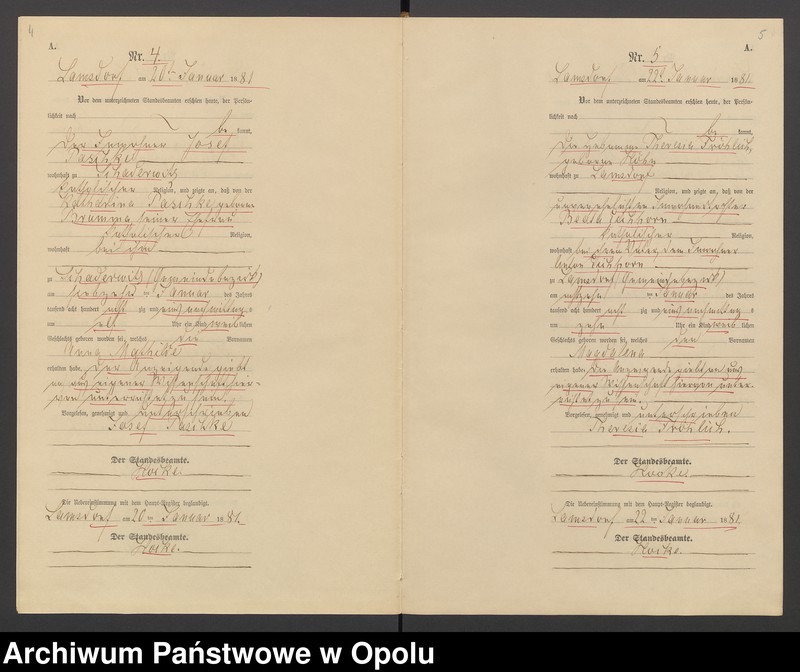 4
A.
Nr. 4.
Lamsdorf am 20ten Januar 1881
Vor dem unterzeichneten Standesbeamten erschien heute, der Persön-
lichkeit nach
be kannt,
Der Josef
Paschke
wohnhaft zu Schaderwitz
katholischer Religion, und zeigte an, daß von der
Katharina Paschke geborene
seiner Ehefrau
katholischer Religion,
wohnhaft bei ihm
zu Schaderwitz (Gemeindebezirk)
am siebzehn ten Januar des Jahres
tausend acht hundert acht zig und ein
um elf Uhr ein Kind weib lichen
Geschlechts geboren worden sei, welches die Vornamen
Anna Mathilde
erhalten habe. Der Anzeigende giebt
an aus eigener Wissenschaft hier-
von unterrichtet zu sein.
Vorgelesen, genehmigt und unterschrieben
Josef Paschke
Der Standesbeamte.
Die Uebereinstimmung mit dem Haupt-Register beglaubigt.
Lamsdorf am 20 ten Januar 1881.
Der Standesbeamte.
5
A.
Nr. 5.
Lamsdorf am 22ten Januar 1881.
Vor dem unterzeichneten Standesbeamten erschien heute, der Persön-
lichkeit nach
be kannt,
Die Hebamme Theresia Fröhlich,
geborene
wohnhaft zu Lamsdorf
Religion, und zeigte an, daß von der
unverehelichten
Eichhorn
katholischer Religion,
wohnhaft bei ihrem Vater, dem
Anton Eichhorn
zu Lamsdorf (Gemeindebezirk)
am ten Januar des Jahres
tausend acht hundert acht zig und ein
um zehn Uhr ein Kind weib lichen
Geschlechts geboren worden sei, welches den Vornamen
Magdalena
erhalten habe. Die Anzeigende giebt an aus
eigener Wissenschaft hiervon unter-
richtet zu sein.
Vorgelesen, genehmigt und unterschrieben
Theresia Fröhlich.
Der Standesbeamte.
Die Uebereinstimmung mit dem Haupt-Register beglaubigt.
Lamsdorf am 22 ten Januar 1881.
Der Standesbeamte.
Archiwum Państwowe w Opolu